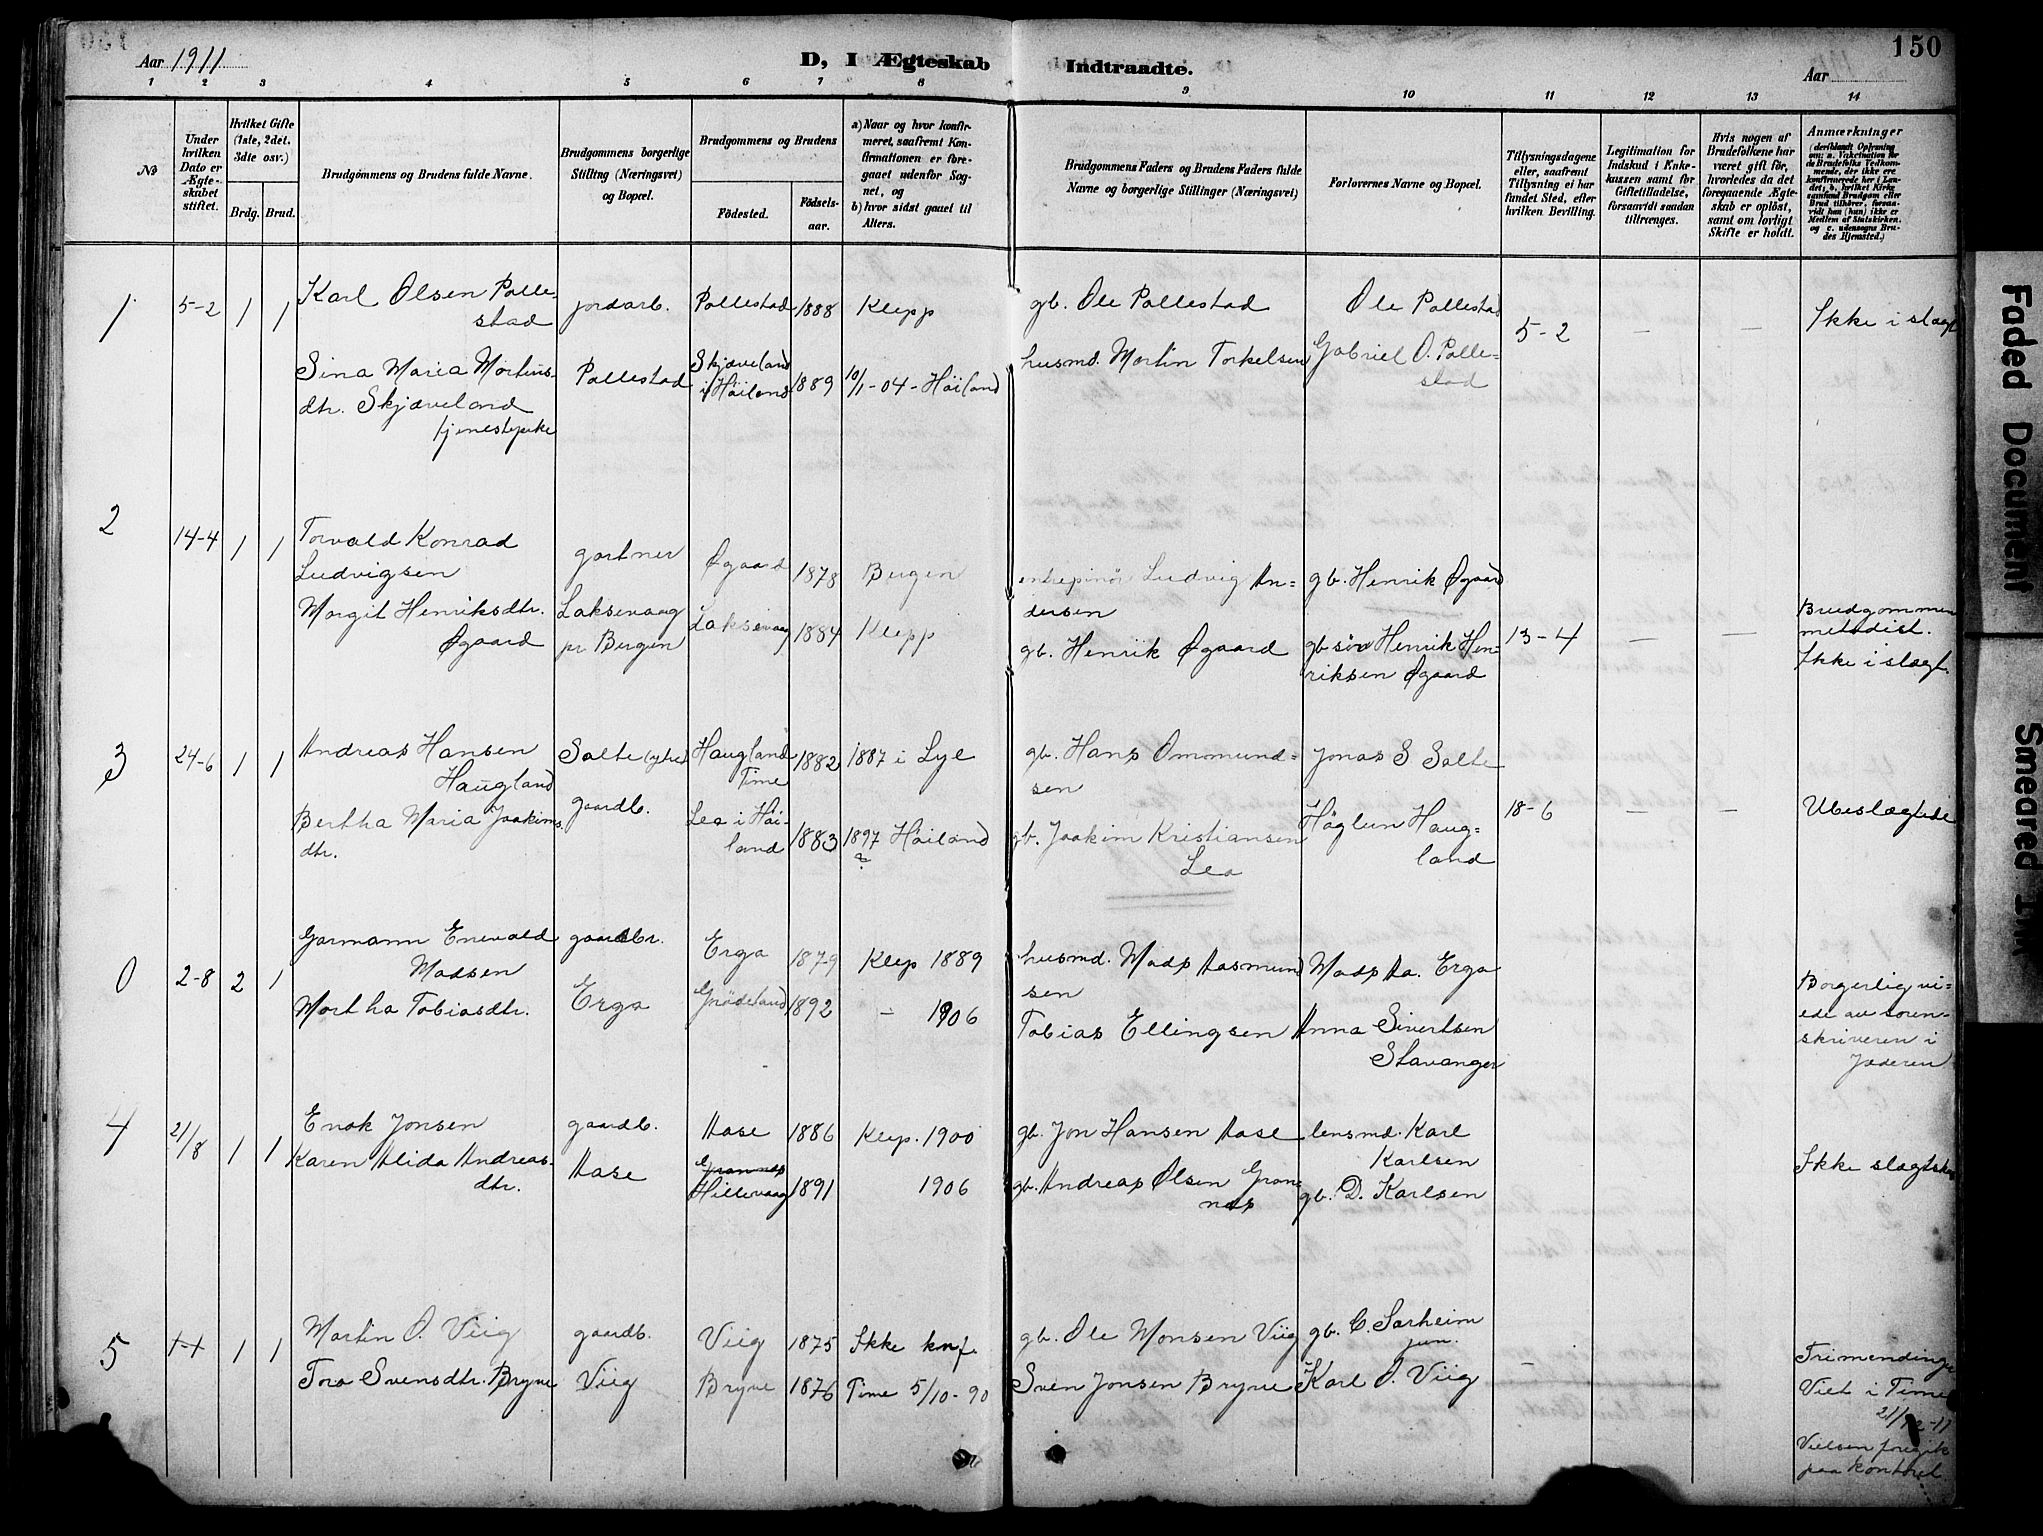 150
Aar 1911
D, I Ægteskab Indtraadte.
Aar
1 2 3 4 5 6 7 8 9 10 11 12 13 14
No
Under hvilken Dato er Ægteskabet stiftet.
Hvilket Gifte (1ste, 2det, 3die osv.)
Brdg. Brud.
Brudgommens og Brudens fulde Navne.
Brudgommens borgerlige Stilling (Næringsvei) og Bopæl.
Brudgommens og Brudens
Fødested.
Fødselsaar.
a) Naar og hvor konfirmeret, saafremt Konfirmationen er foregaaet udenfor Sognet, og
b) hvor sidst gaaet til Alters.
Brudgommens Faders og Brudens Faders fulde Navne og borgerlige Stillinger (Næringsvei)
Forlovernes Navne og Bopæl.
Tillysningsdagene eller, saafremt Tillysning ei har fundet Sted, efter hvilken Bevilling.
Legitimation for Indskud i Enkekassen samt for Giftetilladelse, forsaavidt saadan tiltrænges.
Hvis nogen af Brudefolkene har været gift før, hvorledes da det foregaaende Ægteskab er opløst, samt om lovligt Skifte er holdt.
Anmærkninger
(deriblandt Oplysning om: a. Vakcination for de Brudefolks Vedkommende, der ikke ere konfirmerede her i Landet; b. hvilket Kirkesamfund Brudgom eller Brud tilhører, forsaavidt han (hun) ikke er Medlem af Statskirken, og c. udensogns Brudes Hjemsted.)
1 5-2 1 1
Karl Olsen Pollestad
jordarb. Pollestad 1888 Klepp
gb. Ole Pollestad
Ole Pollestad
5-2 — —
Ikke i slægt
Sina Maria Mortinsdtr. Skjæveland
tjenestepike
Pollestad
Skjæveland i Høiland 1889 10/1-04 - Høiland
husmd. Mortin Torkelsen
Gabriel O. Pollestad
2 14-4 1 1
Torvald Konrad Ludvigsen
gartner Øgaard 1878 Bergen
entrepenør Ludvig Andersen
gb. Henrik Øgaard
Margit Henriksdtr. Øgaard
Laksevaag pr Bergen
Laksevaag 1884 Klepp
gb. Henrik Øgaard
gb søn Henrik Henriksen Øgaard
13-4 — —
Brudgommen metodist.
Ikke i slægt.
3 24-6 1 1
Andreas Hansen Haugland
Salte (ytre) gaardb.
Haugland Time 1882 1887 i Lye
gb. Hans Ommundsen
Jonas S Salte
18-6 — —
Ubeslægtede
Bertha Maria Joakimsdtr.
Lea i Høiland 1883 1897 Høiland
gb. Joakim Kristiansen Lea
Haugland
0 2-8 2 1
Garmann Enevald Madsen
gaardbr. Erga 1879 Klep 1889
husmd. Mads Aasmundsen
Mads Aa. Erga
Martha Tobiasdtr.
Erga Grødeland 1892 – 1906
Tobias Ellingsen
Anna Sivertsen Stavanger
Borgerlig viede av sorenskriveren i Jæderen
4 21/8 1 1
Enok Jonsen
gaardb. Aase 1886 Klep. 1900
gb. Jon Hansen Aase
lensmd. Karl Karlsen
Karen Alida Andreasdtr.
Aase Hillevaag 1891 1906
gb. Andreas Olsen Grannes
gb. D. Karlsen
Ikke slægtska
5 1 1
Martin O. Viig
gaardb. Viig 1875 Ikke knf.
gb. Ole Monsen Viig
gb. C. Sarheim jun.
Tora Svensdtr. Bryne
Viig Bryne 1876 Time 5/10-90
Sven Jonsen Bryne
Karl O. Viig
–
Trimendinge
Viet i Time
21/12-11
Vielsen foregik
paa kontoret.
Faded Document
Smeared Ink